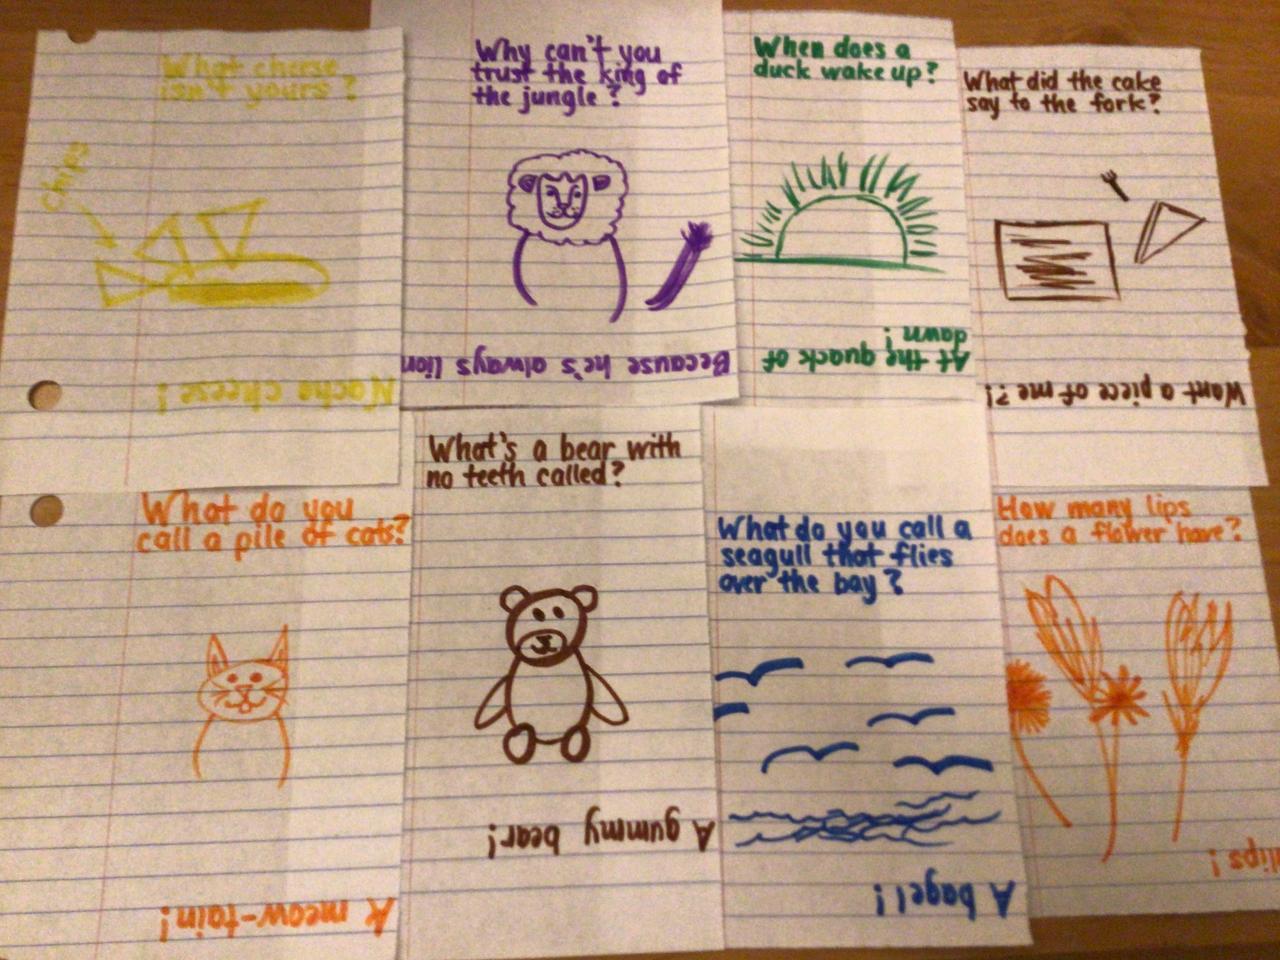 What cheese
isn't yours?
chips
Nacho cheese!
Why can't you
trust the king of
the jungle?
Because he's always lion
When does a
duck wake up?
At the quack of
dawn!
What did the cake
say to the fork?
Want a piece of me?!
What do you
call a pile of cats?
A meow-tain!
What's a bear with
no teeth called?
A gummy bear!
What do you call a
seagull that flies
over the bay?
A bagel!
How many lips
does a flower have?
lips!